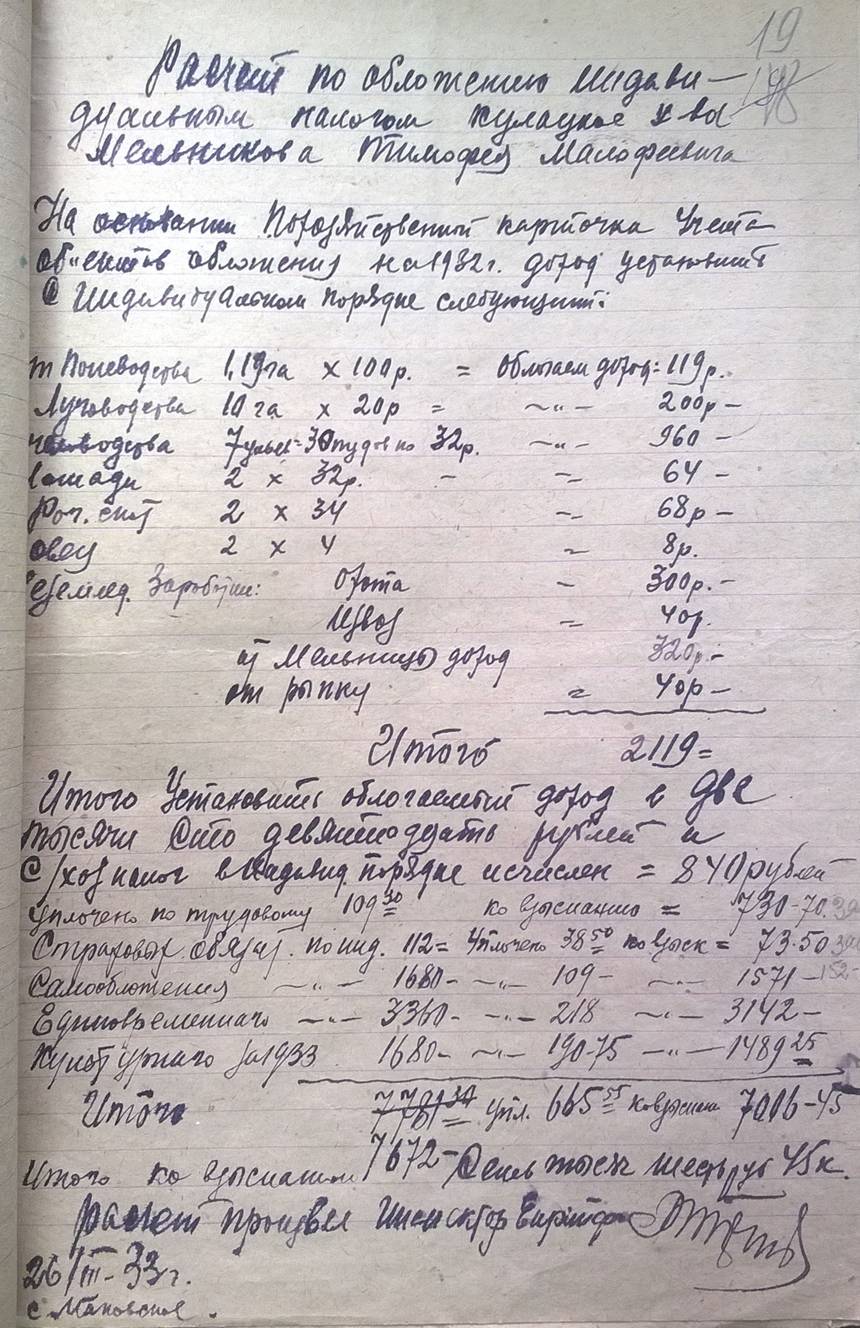 19
Расчет по обложению индиви—
дуальным налогом кулацкое х-ва
Мельникова Тимофея Малофеевича
На основании Похозяйственной карточка Учета
об"ектов обложения на 1932г. доход установить
в Индивидуальном порядке следующий:
т Полеводства 1,19га х 100р. = Облагаем доход = 119р.
Луговодства 10га х 20р = —"— 200р —
человодства 7 ульев = 30 пудов по 32р. —"— 960 —
лошади 2 х 32р. - = 64 —
Рог. скот 2 х 34 = 68р —
овец 2 х 4 = 8р.
Заработки: Охота — 300р. —
Извоз = 40р.
от Мельницы доход 320р. —
от рынку = 40р —
Итого 2119 =
Итого Установить облогаемый доход в Две
тысячи Сто девятнодцать рублей и
С/хоз налог в Индивид. порядке исчислен = 840 рублей
Уплочено по трудовому 109 30 ко взысканию = 730-70.
Страховых обязат. по инд. 112 = Уплочено 38 50 ко взыск = 73·50
Самообложения —"— 1680 — —"— 109 — —"— 1571 —
Единовременнаго —"— 3360 — —"— 218 —"— 3142 —
Культурнаго за 1933 1680 — —"— 190-75 —"— 1489 25
Итого упл. 665 55 ко взыскан 7006-45
7672-
Итого ко взысканию Семь тысяч шесть руб 45 к.
расчет произвел Инспектор
26/III-33г.
с. Маковское.